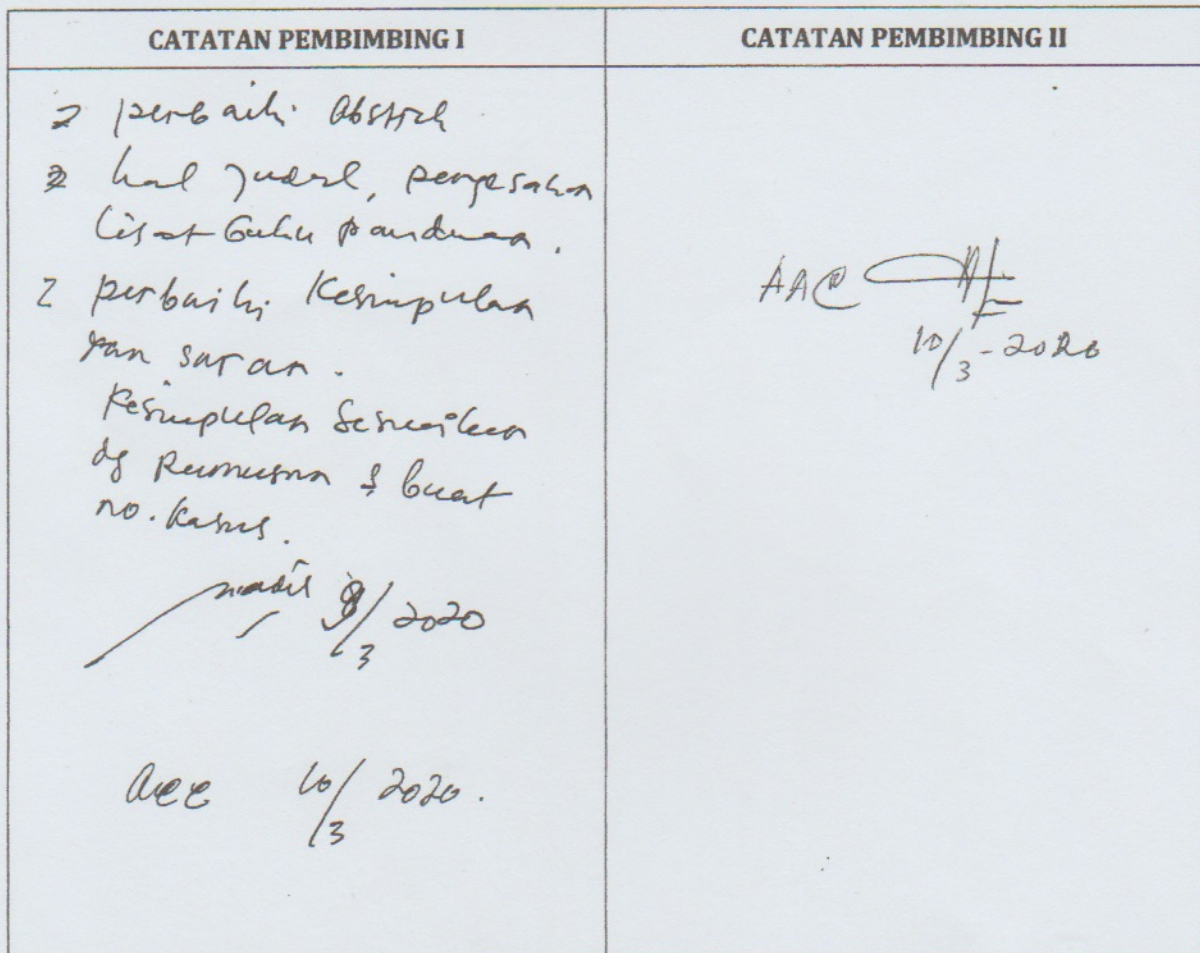 CATATAN PEMBIMBING I
CATATAN PEMBIMBING II
perbaiki Abstrak
hal judul, pengesahan
lihat buku panduan.
perbaiki Kesimpulan
dan saran.
Kesimpulan Sesuaikan
dg Rumusan & buat
no. Kasus.
9/3 2020
acc 10/3 2020.
AAC
10/3-2020